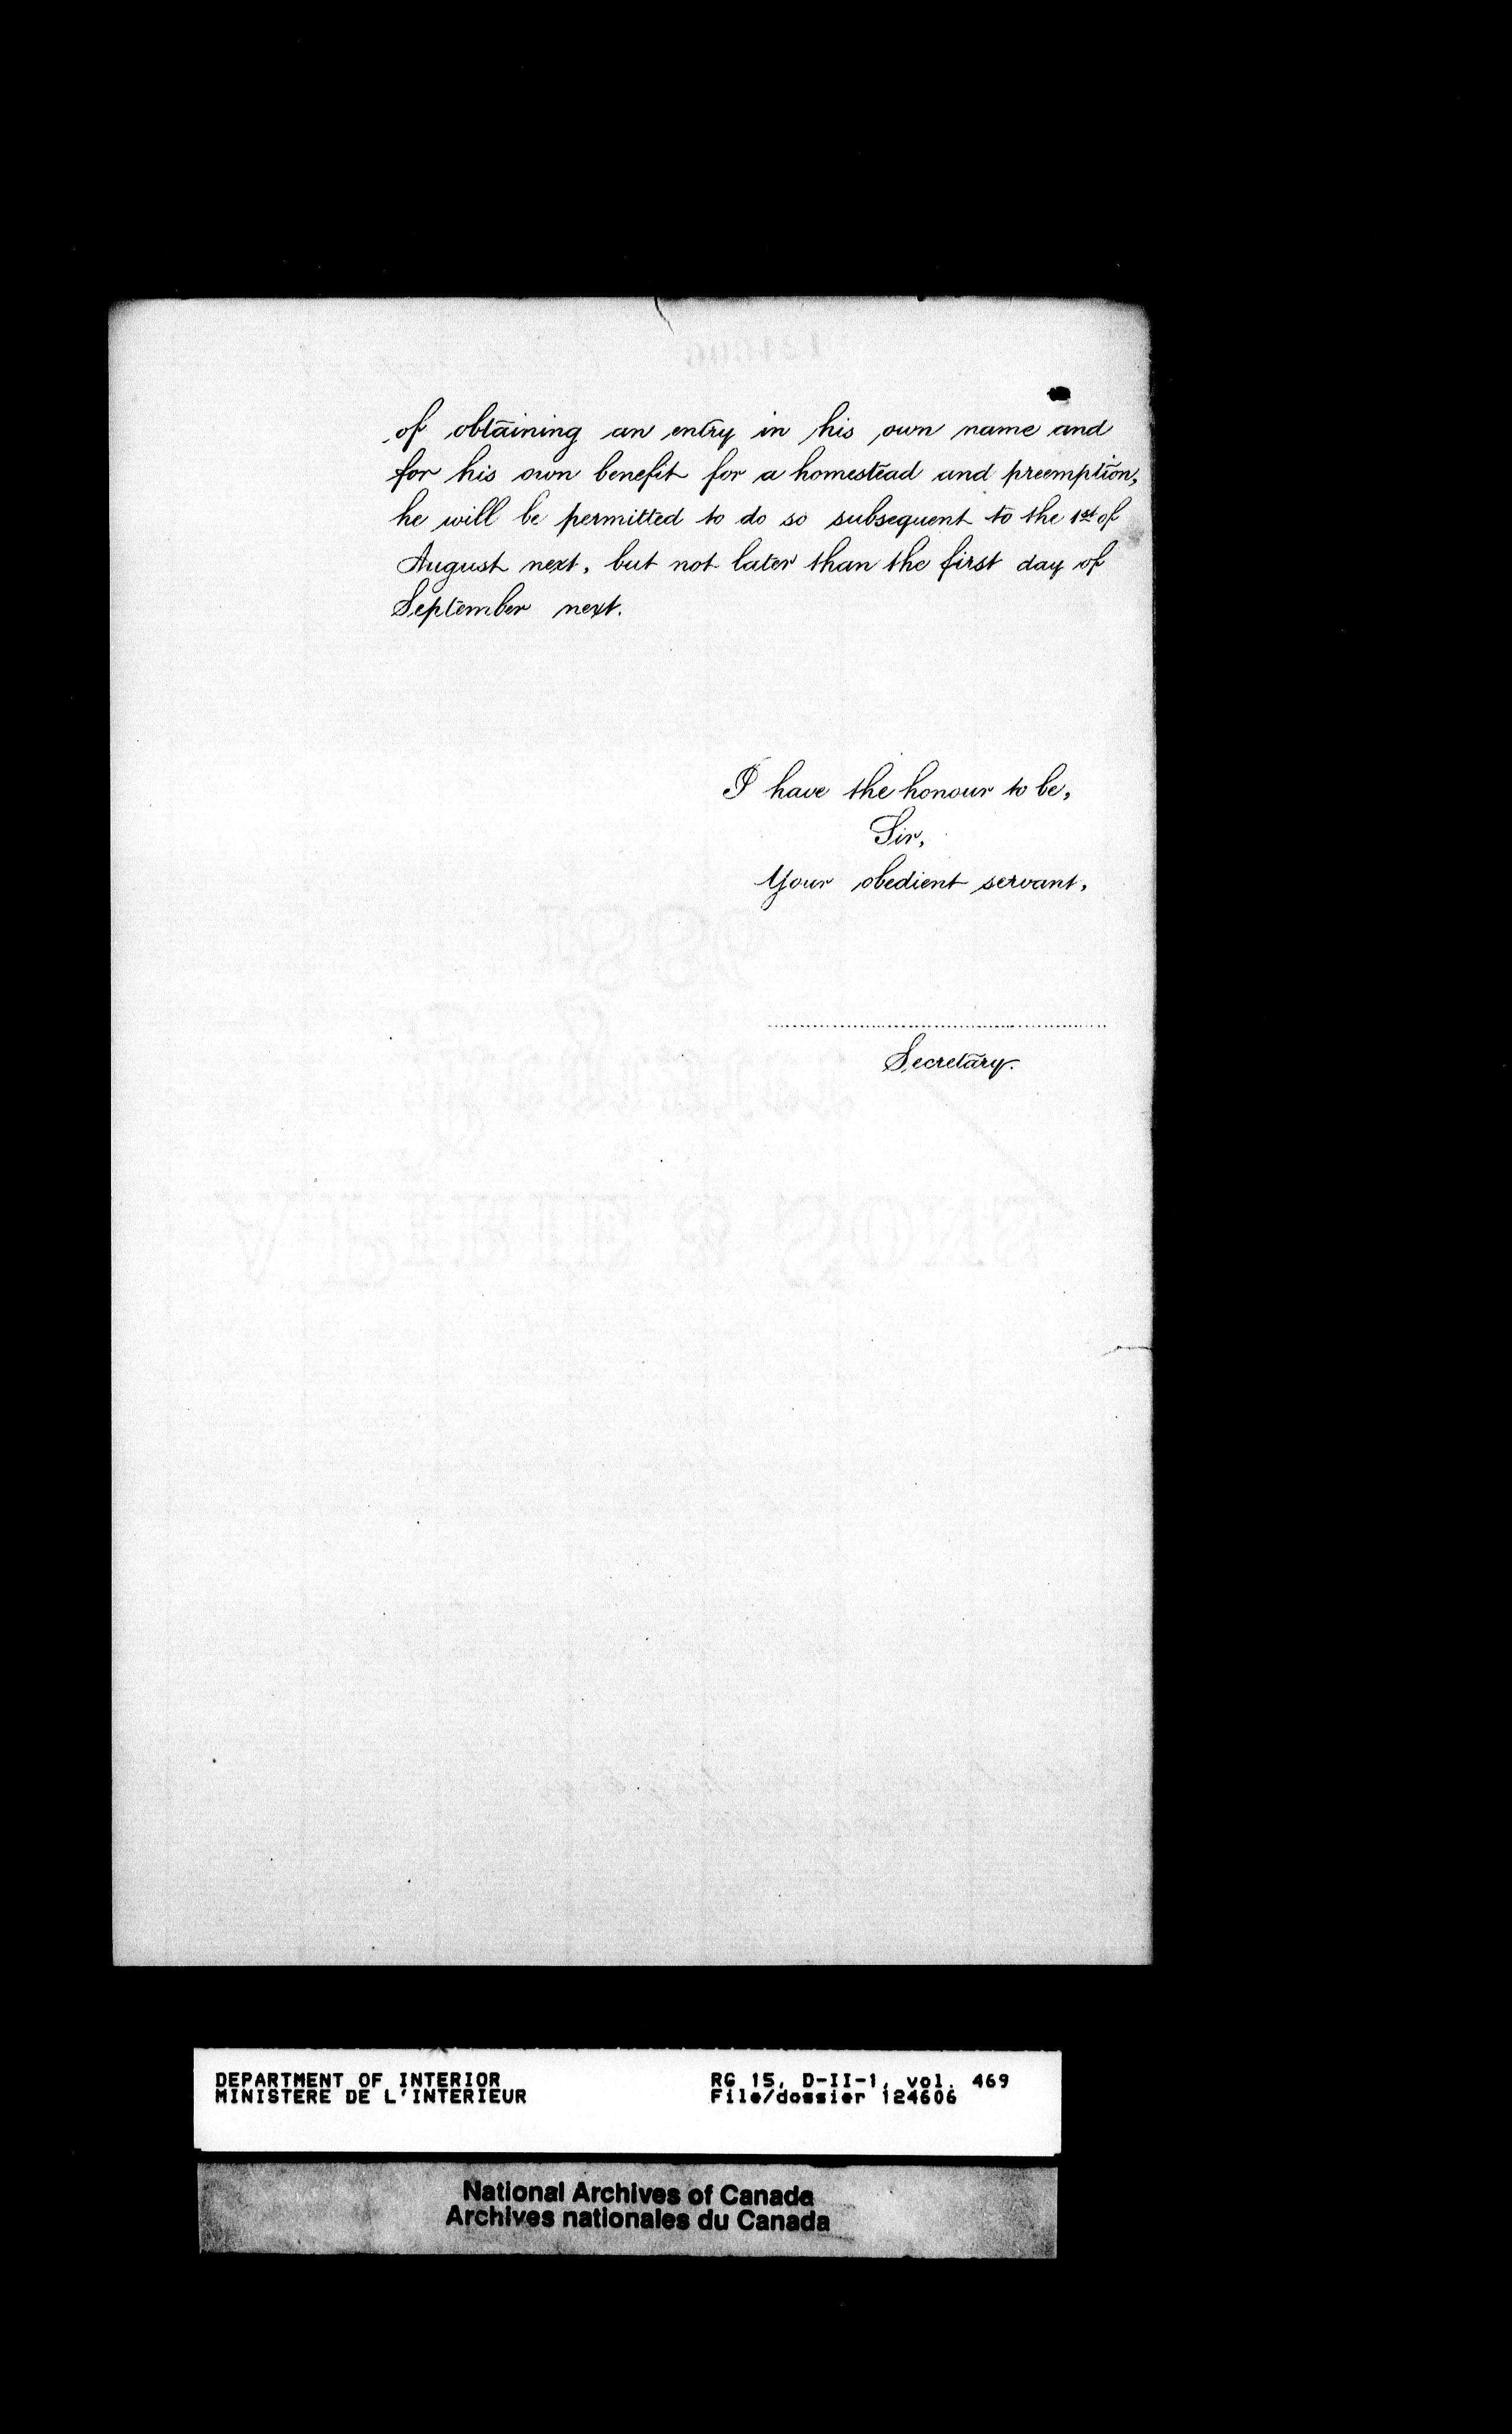 of obtaining an entry in his own name and
for his own benefit for a homestead and preemption,
he will be permitted to do so subsequent to the 1st of
August next, but not later than the first day of
September next.
I have the honour to be,
Sir,
Your obedient servant,
Secretary.
DEPARTMENT OF INTERIOR
MINISTERE DE L'INTERIEUR
RG 15, D-II-1, vol. 469
File/dossier 124606
National Archives of Canada
Archives nationales du Canada